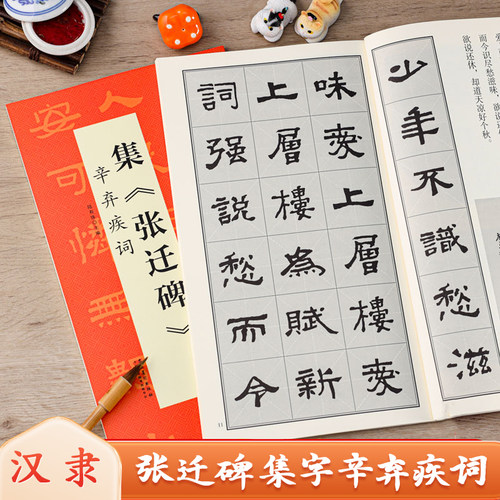 集《张迁碑》
辛弃疾词
而今识尽愁滋味，欲说
欲说还休，却道天凉好个秋。
少年不識愁滋
味愛上層樓愛
上層樓為賦新
詞强說愁而今
11
汉隶
张迁碑集字辛弃疾词